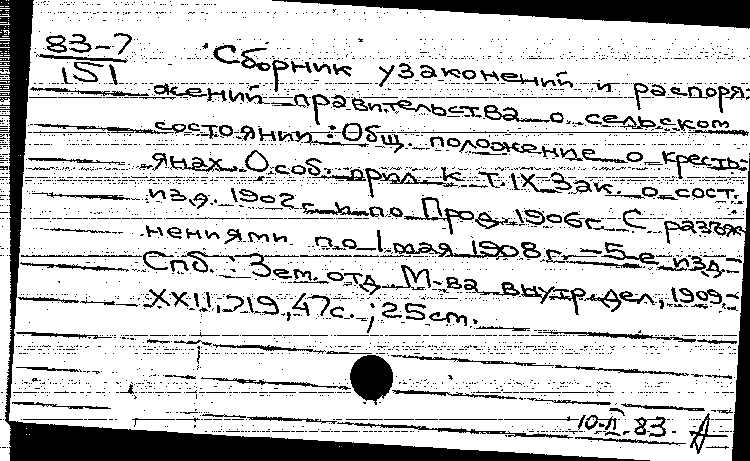 83-7
151
Сборник узаконений и распоря-
жений правительства о сельском
состоянии: Общ. положение о кресть-
янах. Особ. прил. к т. IX Зак. о сост.
изд. 1902 г. и по Прод. 1906 г. С разъяс-
нениями по 1 мая 1908 г. – 5-е изд. –
Спб.: Зем. отд. М-ва внутр. дел, 1909. –
XXII, 719, 47 с.; 25 см.
10-II.83.